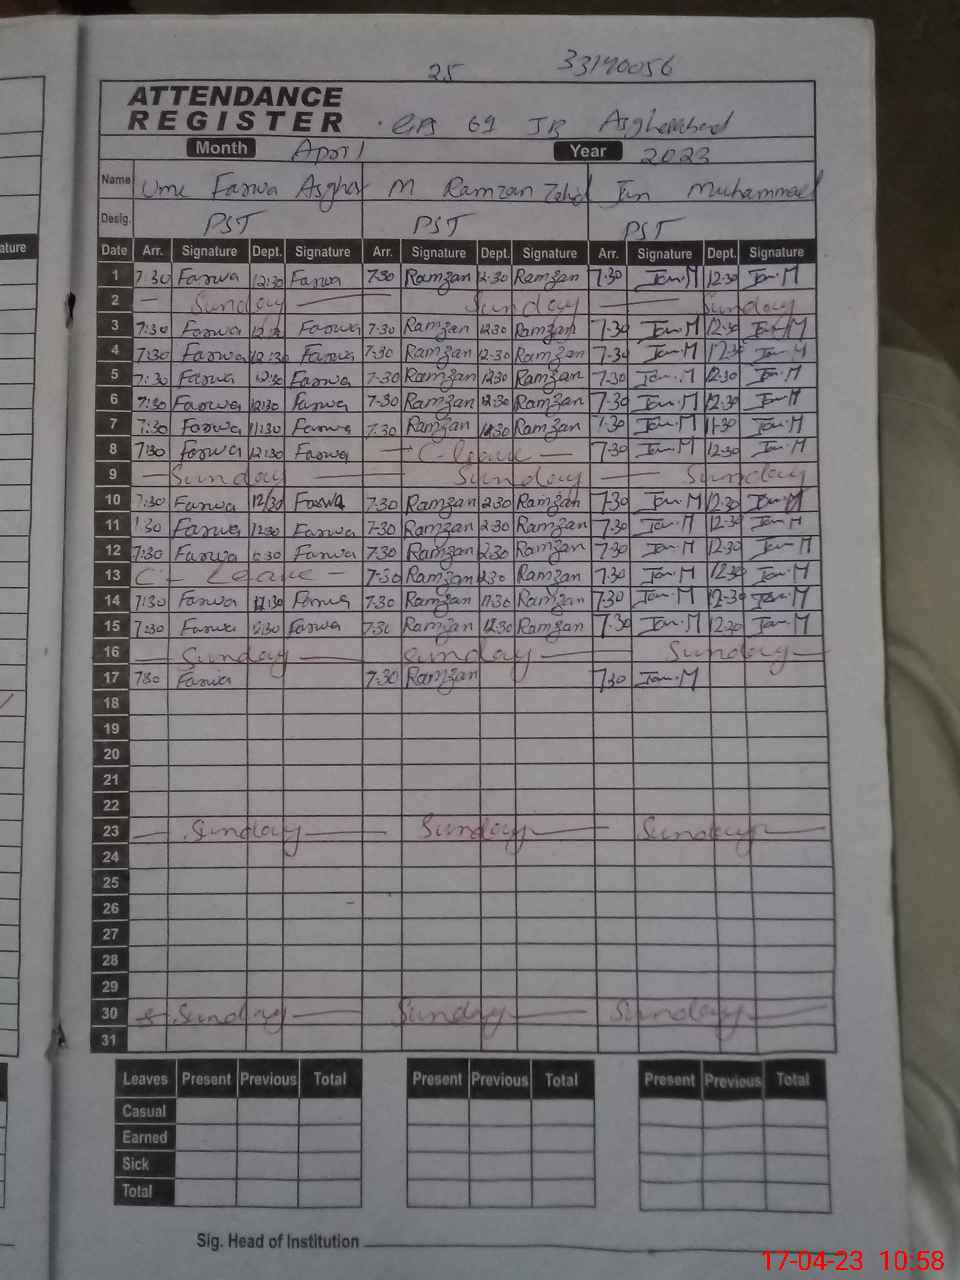 25 33190056
ATTENDANCE
REGISTER GPS 69 JB Asgherabad
Month April Year 2023
Name Ume Farwa Asghar M Ramzan Zahid Jan Muhammad
Desig. PST PST PST
ature Date Arr. Signature Dept. Signature Arr. Signature Dept. Signature Arr. Signature Dept. Signature
1 7:30 Farwa 12:30 Farwa 7-30 Ramzan 12-30 Ramzan 7-30 Jan.M 12-30 Jan.M
2 — Sunday — Sunday — Sunday
3 7:30 Farwa Farwa 7-30 Ramzan 12-30 Ramzan 7-30 Jan.M 12-30 Jan.M
4 7:30 Farwa 12:30 Farwa 7-30 Ramzan 12-30 Ramzan 7-30 Jan.M 12-30 Jan.M
5 7:30 Farwa 12:30 Farwa 7-30 Ramzan 12-30 Ramzan 7-30 Jan.M 12-30 Jan.M
6 7:30 Farwa 12:30 Farwa 7-30 Ramzan 12-30 Ramzan 7-30 Jan.M 12-30 Jan.M
7 7:30 Farwa 11:30 Farwa 7-30 Ramzan Ramzan 7-30 Jan.M 11-30 Jan.M
8 7:30 Farwa 12:30 Farwa — C-leave — 7-30 Jan.M 12-30 Jan.M
9 — Sunday — Sunday — Sunday
10 7:30 Farwa 12/30 Farwa 7-30 Ramzan 2-30 Ramzan 7-30 Jan.M 12-30 Jan.M
11 Farwa 12:30 Farwa 7-30 Ramzan 2-30 Ramzan 7-30 Jan.M 12-30 Jan.M
12 7:30 Farwa Farwa 7-30 Ramzan 2-30 Ramzan 7-30 Jan.M 12-30 Jan.M
13 C- Leave — 7-30 Ramzan Ramzan 7-30 Jan.M 12-30 Jan.M
14 7:30 Farwa Farwa 7-30 Ramzan 11-30 Ramzan 7-30 Jan.M Jan.M
15 7:30 Farwa Farwa 7-30 Ramzan Ramzan 7-30 Jan.M 12-30 Jan.M
16 — Sunday — Sunday — Sunday —
17 7:30 Farwa 7-30 Ramzan 7-30 Jan.M
18
19
20
21
22
23 — Sunday — Sunday — Sunday —
24
25
26
27
28
29
30 Sunday — Sunday — Sunday —
31
Leaves Present Previous Total Present Previous Total Present Previous Total
Casual
Earned
Sick
Total
Sig. Head of Institution
17-04-23 10:58